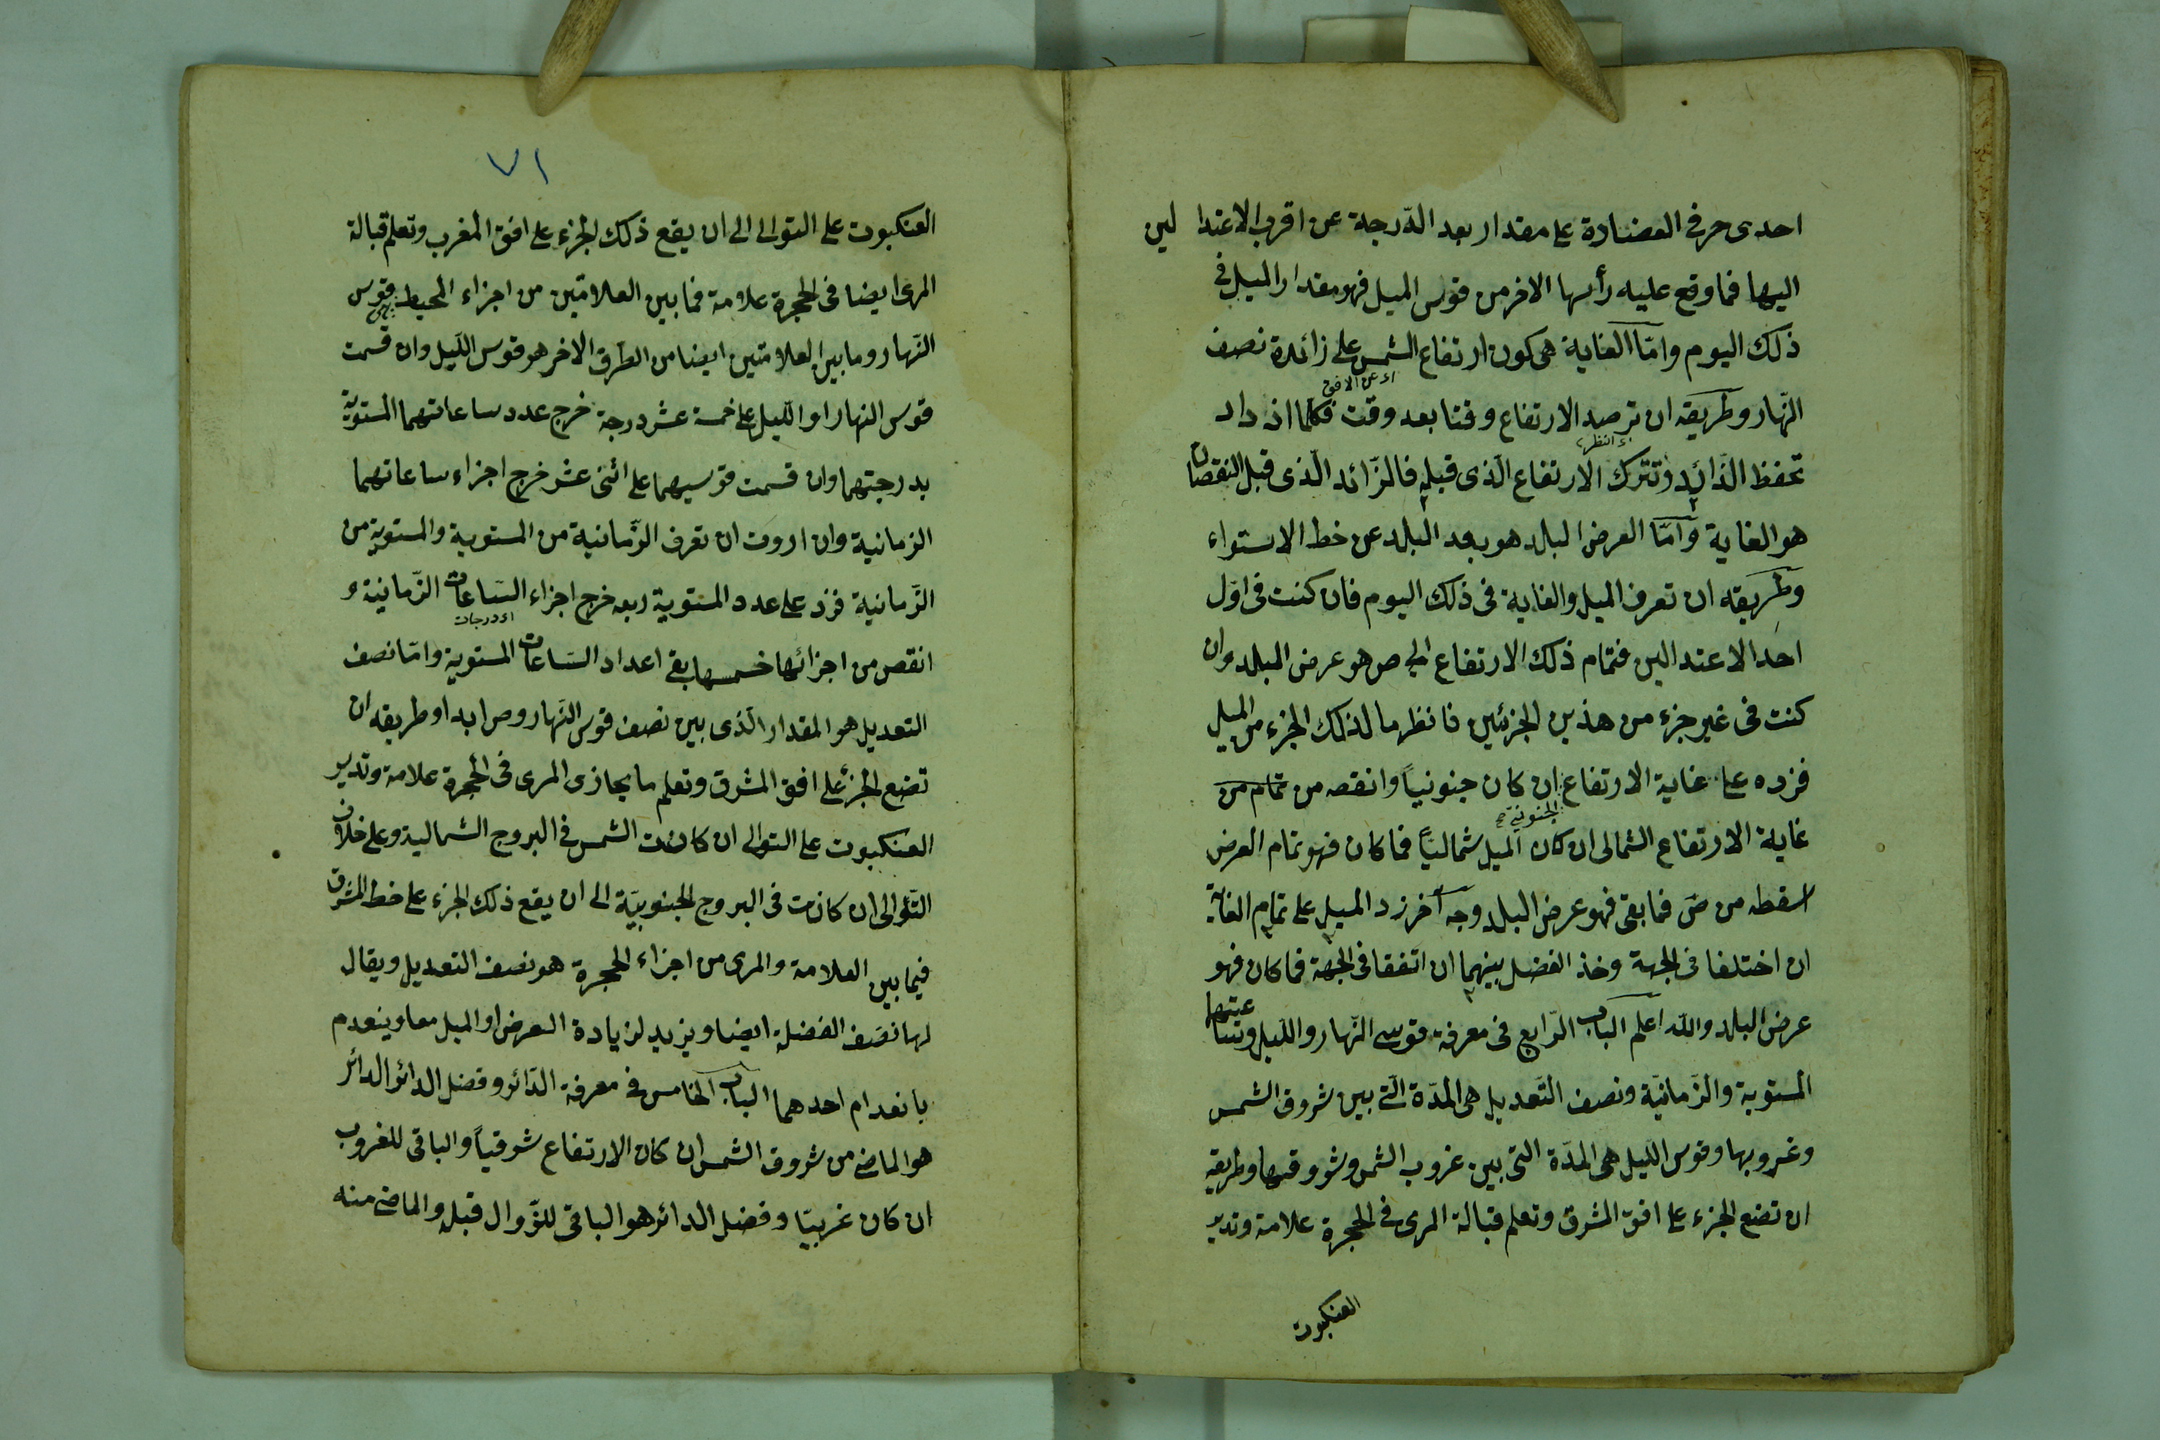 احدى حرفى العضادة على مقدار بعد الدّرجة عن اقرب الاعتدا لين
اليها فما وقع عليه رأسها الاخر من قوس الميل فهو مقدار الميل فى
ذلك اليوم وامّا الغاية هى كون ارتفاع الشمس على زائدة نصف
اى عن الافق
النّهار وطريقه ان ترصد الارتفاع وقتا بعد وقت فكلما اذ داد
تحفظ الذّائد وتترك الارتفاع الّذى قبله فالزّائد الّذى قبل النقصان
هو الغاية وامّا العرض البلد هو بعد البلد عن خط الاستواء
وطريقه ان تعرف الميل والغاية فى ذلك اليوم فان كنت فى اوّل
احد الاعتدالين فتمام ذلك الارتفاع الى ص هو عرض البلد وان
كنت فى غير جزء من هذين الجزئين فانظر ما لذلك الجزء من الميل
فزده على غاية الارتفاع ان كان جنونياً وانقصه من تمام من
الجنونيّة
غاية الارتفاع الشمالى ان كان الميل شمالنيّاً فما كان فهو تمام العرض
اسقطه من صَ فما بقى فهو عرض البلد وجه آخر زد الميل على تمام الغاية
ان اختلفا فى الجهة وخذ الفضل بينهما ان اتفقا فى الجهة فما كان فهو
عرض البلد والله اعلم الباب الرّابع فى معرفة قوسى النّهار والليل وسا عتهما
المستوية والزّمانيّة ونصف التّعديل هى المدّة الّتى بين شروق الشمس
وغروبها وقوس الليل هى المدّة التى بين غروب الشمس وشروقها وطريقه
ان تضع الجزء على افق المشرق وتعلم قبالة المرى فى الحجرة علامة وتدير
العنكبوت
٧١
العنكبوت على التوالى الى ان يقع ذلك الجزء على افق المغرب وتعلم قبالة
المرى ايضا فى الحجرة علامة فما بين العلامتين من اجزاء المحيط قوس
النّهار وما بين العلامتين ايضا من الطرق الاخر هو قوس اللّيل وان قسمت
قوس النهار او اللّيل على خمسة عشر درجة خرج عدد ساعاتهما المستوية
بدرجتهما وان قسمت قوسيهما على اثنى عشر خرج اجزاء ساعاتهما
الزمانية وان اروت ان تعرف الزّمانية من المستوية والمستوية من
الزّمانية فزد على عدد المستوية ربعه خرج اجزاء السّاعات الزّمانية و
اى درجات
انقص من اجزائها خمسها بقى اعداد السّاعات المستوية وامّا نصف
التعديل هو المقدار الّذى بين نصف قوس النّهار وص ابدا وطريقه ان
تضع الجزئ على افق المشرق وتعلم ما يجازى المرى فى الحجرة علامة وتدير
العنكبوت على التوالى ان كانت الشمس فى البروج الشمالية وعلى خلاف
التّوالى ان كانت فى البروج الجنوبيّة الى ان يقع ذلك الجزء على خط المشرق
فيما بين العلامة والمرى من اجزاء الحجرة هو نصف التعديل ويقال
لها نصف الفضلة ايضا ويزيد لزيادة العرض او الميل معا وينعدم
بانعدام احدهما الباب الخامس فى معرفة الدّائر وفضل الدائر الدائر
هو الماضى من شروق الشمس ان كان الارتفاع شروقياً والباقى للغروب
ان كان غربيّا وفضل الدائر هو الباقى للزّوال قبله والماضى منه